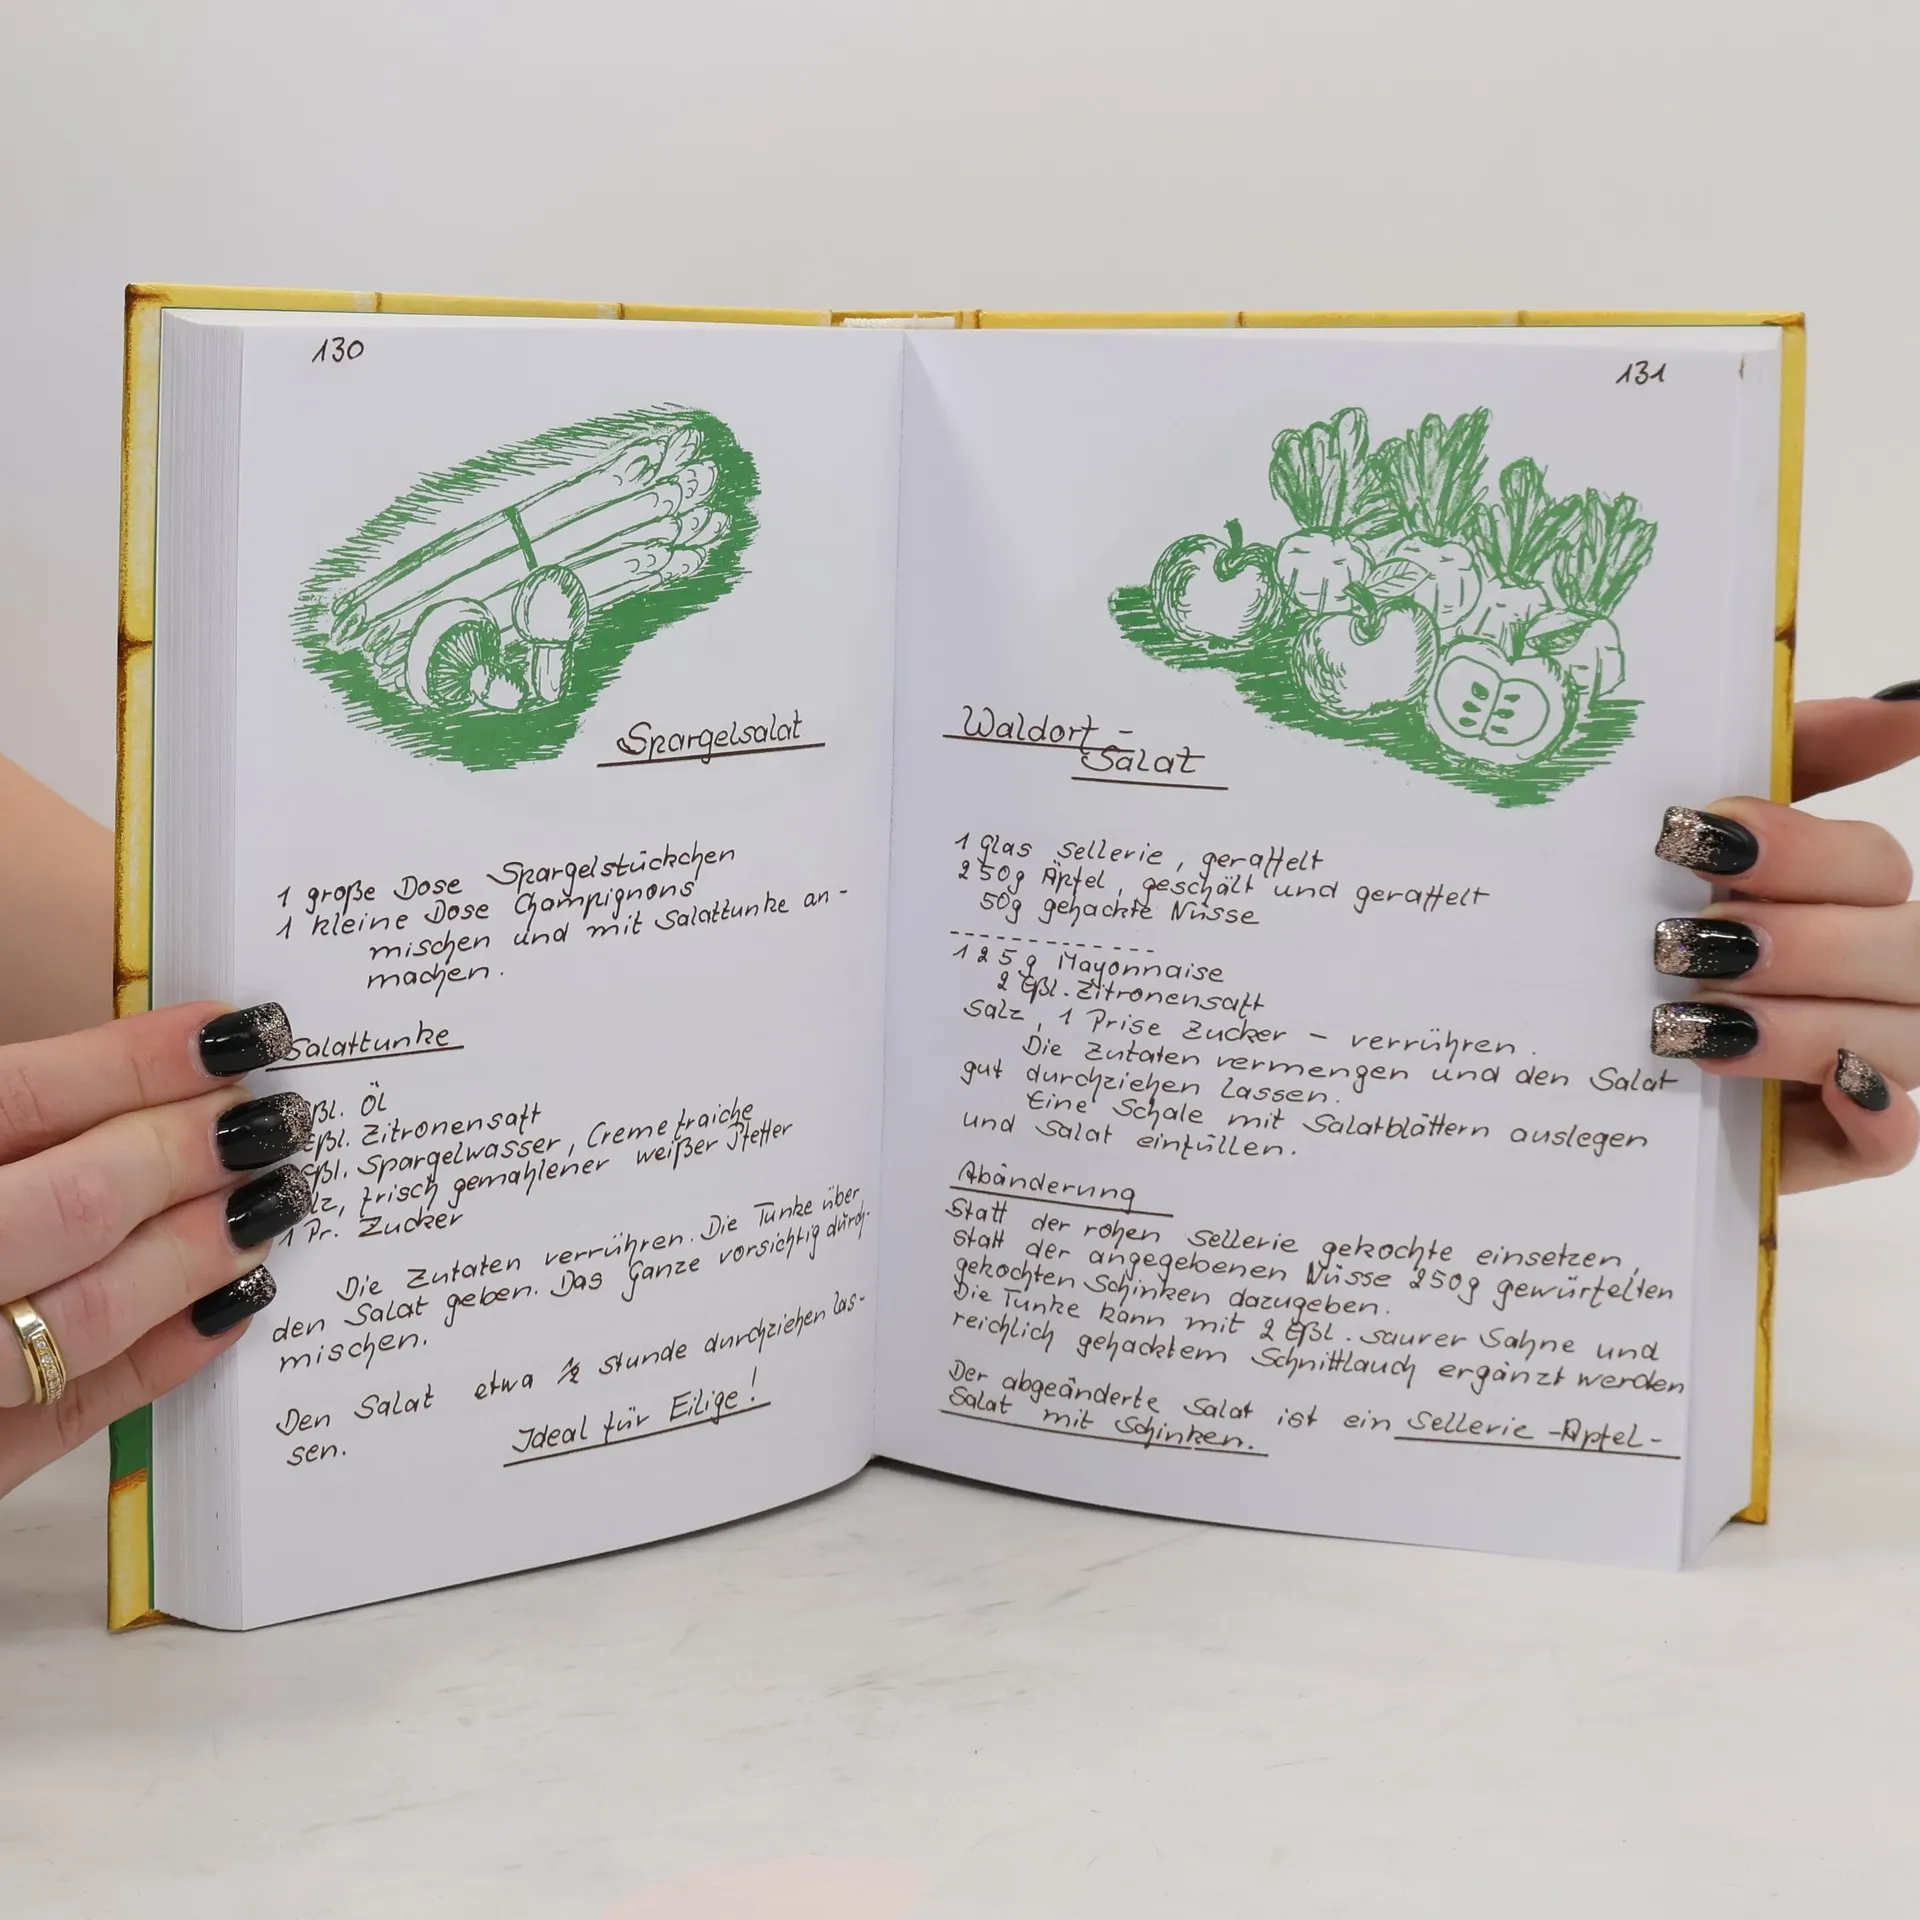 130
Spargelsalat
1 große Dose Spargelstückchen
1 kleine Dose Champignons
mischen und mit Salattunke an-
machen.
Salattunke
Eßl. Öl
Eßl. Zitronensaft
Eßl. Spargelwasser, Creme fraiche
frisch gemahlener weißer Pfeffer
1 Pr. Zucker
Die Zutaten verrühren. Die Tunke über
den Salat geben. Das Ganze vorsichtig durch-
mischen.
Den Salat etwa ½ Stunde durchziehen las-
sen.
Ideal für Eilige!
131
Waldort-
Salat
1 Glas Sellerie, geraffelt
250g Äpfel, geschält und geraffelt
50g gehackte Nüsse
125g Mayonnaise
2 Eßl. Zitronensaft
Salz, 1 Prise Zucker – verrühren.
Die Zutaten vermengen und den Salat
gut durchziehen lassen.
Eine Schale mit Salatblättern auslegen
und Salat einfüllen.
Abänderung
Statt der rohen Sellerie gekochte einsetzen,
statt der angegebenen Nüsse 250g gewürfelten
gekochten Schinken dazugeben.
Die Tunke kann mit 2 Eßl. saurer Sahne und
reichlich gehacktem Schnittlauch ergänzt werden
Der abgeänderte Salat ist ein Sellerie-Apfel-
Salat mit Schinken.